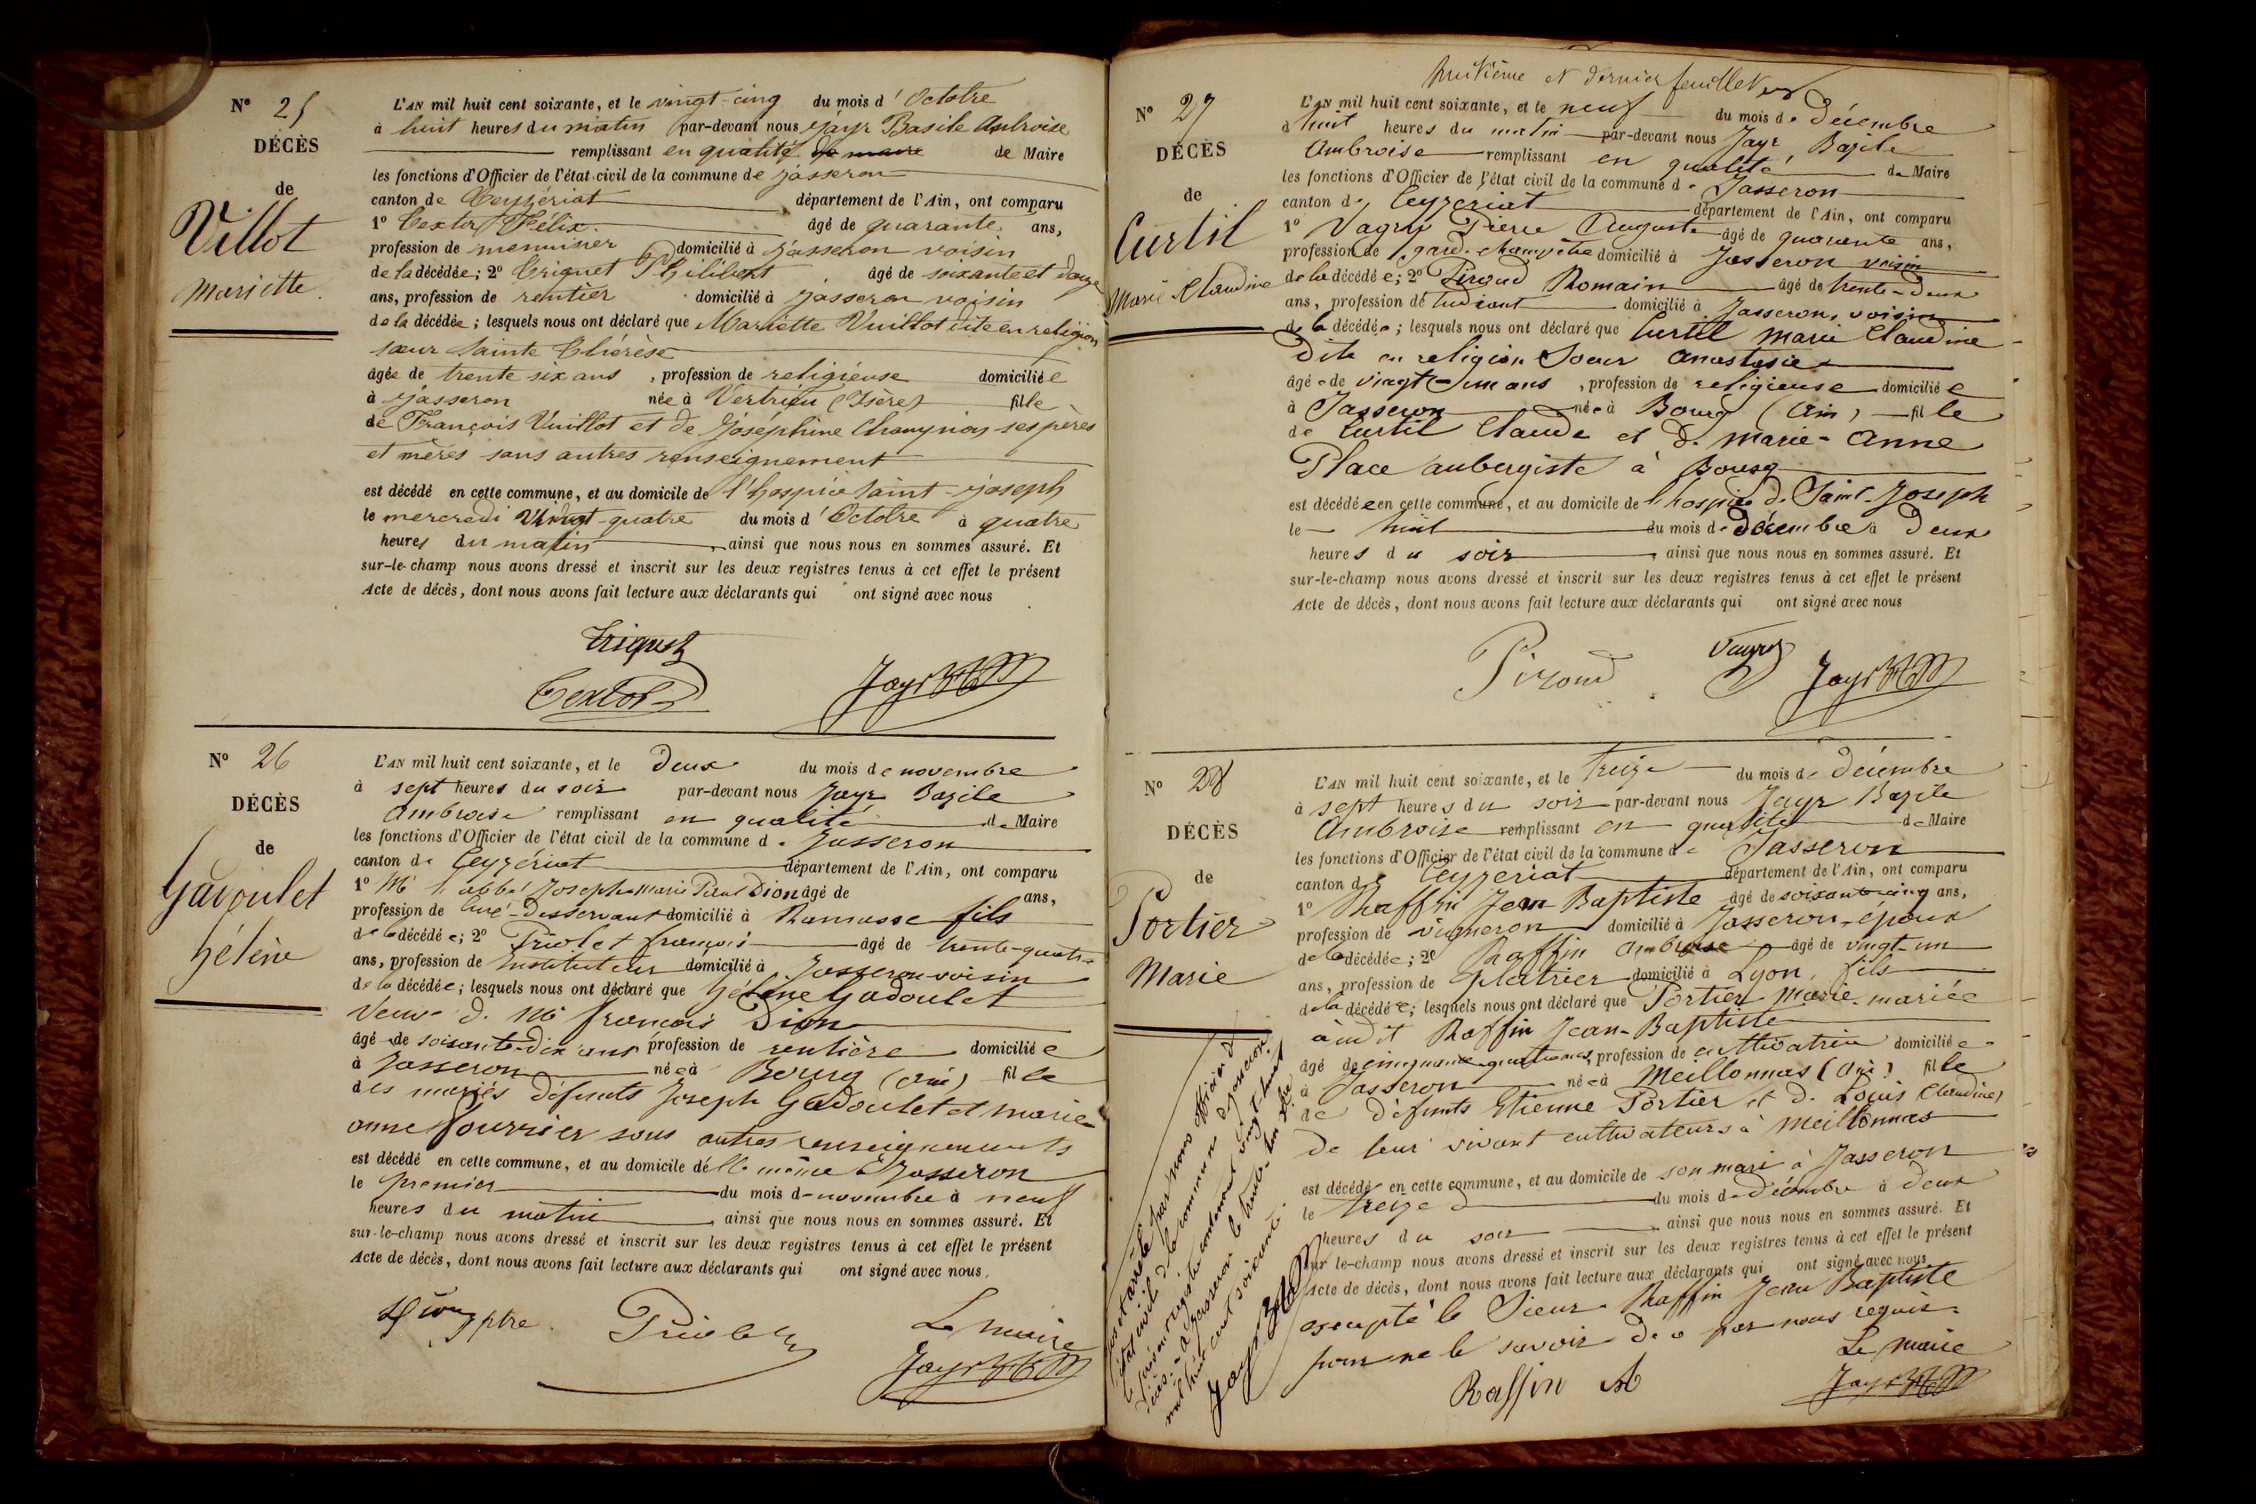 N° 25
DÉCÈS
de
Villot
Mariette.
L'AN mil huit cent soixante, et le vingt-cinq du mois d'Octobre
à huit heures du matin par-devant nous Jayr Basile Ambroise
remplissant en qualité de maire de Maire
les fonctions d'Officier de l'état civil de la commune de Jasseron
canton de Ceyzériat département de l'Ain, ont comparu
1° Textor Félix. âgé de quarante ans,
profession de menuisier domicilié à Jasseron voisin
de la décédée; 2° Triquet Philibert âgé de soixante et douze
ans, profession de rentier domicilié à Jasseron voisin
de la décédée; lesquels nous ont déclaré que Mariette Vuillot dite en religion
sœur Sainte Thérèse
âgée de trente six ans, profession de religieuse domiciliée
à Jasseron née à Vertrieu (Isère) fille
de François Vuillot et de Joséphine ses pères
et mères sans autres renseignement
est décédé en cette commune, et au domicile de l'hospice Saint-Joseph
le mercredi Vingt-quatre du mois d'Octobre à quatre
heures du matin, ainsi que nous nous en sommes assuré. Et
sur-le-champ nous avons dressé et inscrit sur les deux registres tenus à cet effet le présent
Acte de décès, dont nous avons fait lecture aux déclarants qui ont signé avec nous
Triquet
Textor
Jayr
N° 26
DÉCÈS
de
Gadoulet
Hélène
L'AN mil huit cent soixante, et le Deux du mois de novembre
à sept heures du soir par-devant nous Jayr Bazile
Ambroise remplissant en qualité de Maire
les fonctions d'Officier de l'état civil de la commune de Jasseron
canton de Ceyzériat département de l'Ain, ont comparu
1° Mr l'abbé Joseph-Marie Dion âgé de ans,
profession de Curé-Desservant domicilié à Ramasse fils
de la décédée; 2° Priolet françois âgé de trente-quatre
ans, profession de Instituteur domicilié à Jasseron voisin
de la décédée; lesquels nous ont déclaré que Hélène Gadoulet
Veuve de Mr françois Dion
âgé de soixante-dix ans profession de rentière domiciliée
à Jasseron née à Bourg (Ain) fille
des mariés défunts Joseph Gadoulet et marie
anne fourrier sans autres renseignements
est décédé en cette commune, et au domicile d'elle même à Jasseron
le premier du mois de novembre à neuf
heures du matin, ainsi que nous nous en sommes assuré. Et
sur-le-champ nous avons dressé et inscrit sur les deux registres tenus à cet effet le présent
Acte de décès, dont nous avons fait lecture aux déclarants qui ont signé avec nous.
Dion ptre.
Priolet
Le maire
Jayr
huitième et dernier feuillet
N° 27
DÉCÈS
de
Curtil
Marie Claudine
L'AN mil huit cent soixante, et le neuf du mois de décembre
à huit heures du matin par-devant nous Jayr Bazile
Ambroise remplissant en qualité de Maire
les fonctions d'Officier de l'état civil de la commune de Jasseron
canton de Ceyzeriat département de l'Ain, ont comparu
1° Vagry Pierre Auguste âgé de quarante ans,
profession de garde-champêtre domicilié à Jasseron voisin
de la décédée; 2° Piroud Romain âgé de trente-deux
ans, profession de domicilié à Jasseron, voisin
de la décédée; lesquels nous ont déclaré que Curtil marie Claudine
Dite en religion Soeur Anastasie
âgée de vingt-un ans, profession de religieuse domiciliée
à Jasseron née à Bourg (Ain) fille
de Curtil Claude et de Marie-Anne
Place aubergiste à Bourg
est décédée en cette commune, et au domicile de l'hospice de Saint-Joseph
le huit du mois de Décembre à Deux
heures du soir, ainsi que nous nous en sommes assuré. Et
sur-le-champ nous avons dressé et inscrit sur les deux registres tenus à cet effet le présent
Acte de décès, dont nous avons fait lecture aux déclarants qui ont signé avec nous
Piroud
Vagry
Jayr
N° 28
DÉCÈS
de
Portier
Marie
L'AN mil huit cent soixante, et le Treize du mois de décembre
à sept heures du soir par-devant nous Jayr Bazile
Ambroise remplissant en qualité de Maire
les fonctions d'Officier de l'état civil de la commune de Jasseron
canton de Ceyzeriat département de l'Ain, ont comparu
1° Raffin Jean Baptiste âgé de soixante cinq ans,
profession de vigneron domicilié à Jasseron, époux
de la décédée; 2° Raffin Ambroise âgé de vingt-un
ans, profession de platrier domicilié à Lyon, fils
de la décédée; lesquels nous ont déclaré que Portier Marie mariée
àudit Raffin Jean-Baptiste
âgé de cinquante-quatre ans, profession de cultivatrice domiciliée
à Jasseron née à Meillonnas (Ain) fille
de défunts Etienne Portier et de Louis Claudine
de leur vivant cultivateurs à Meillonnas
est décédé en cette commune, et au domicile de son mari à Jasseron
le treize du mois de Décembre à deux
heures du soir, ainsi que nous nous en sommes assuré. Et
sur le-champ nous avons dressé et inscrit sur les deux registres tenus à cet effet le présent
Acte de décès, dont nous avons fait lecture aux déclarants qui ont signé avec nous
excepté le Sieur Raffin Jean Baptiste
pour ne le savoir de ce par nous requis.
Le maire
Raffin A
Jayr
Clos et arrêté par nous officier de
l'état civil de la commune de Jasseron
le présent registre contenant vingt huit
décès. à Jasseron le trente-un Xbre
mil huit cent soixante.
Jayr